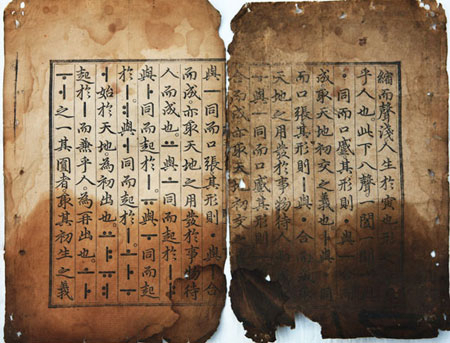 縮而聲淺。人生於寅也。形之
乎人也。此下八聲。一闔一闢
ㆍ同而口蹙。其形則ㆍ與ㅡ
成。取天地初交之義也。ㅏ與ㆍ同
而口張。其形則ㅣ與ㆍ合而
天地之用發於事物待人
ㅜ與ㅡ同而口蹙。其形則
合而成。亦取天地初交之
與ㅡ同而口張。其形則ㆍ與ㅣ合
而成。亦取天地之用發於事物待
人而成也。ㅛ與ㅗ同而起於ㅣ。ㅑ
與ㅏ同而起於ㅣ。ㅠ與ㅜ同而起
於ㅣ。ㅕ與ㅓ同而起於ㅣ。ㅗㅏㅜ
ㅓ始於天地。為初出也。ㅛㅑㅠㅕ
起於ㅣ而兼乎人。為再出也。ㅗㅏ
ㅜㅓ之一其圓者。取其初生之義